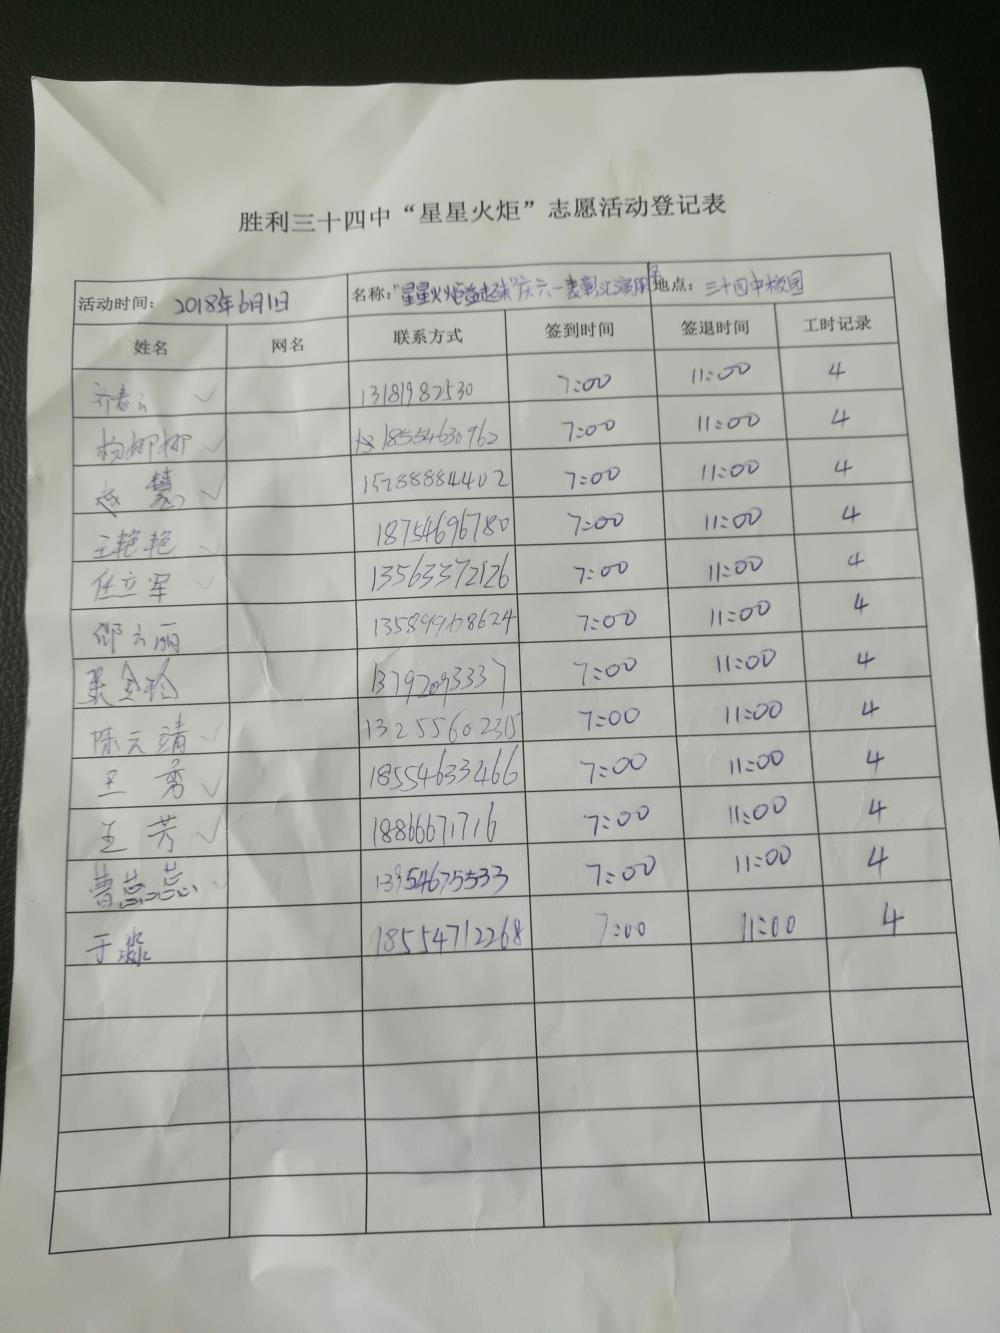 胜利三十四中“星星火炬”志愿活动登记表
活动时间：2018年6月1日 名称：“星星火炬益起来”庆六一表彰汇演 地点：三十四中校园
姓名 网名 联系方式 签到时间 签退时间 工时记录
齐春云 ✓ 13181982530 7:00 11:00 4
杨娜娜 ✓ 18554630962 7:00 11:00 4
赵慧 ✓ 15288884402 7:00 11:00 4
王艳艳 ✓ 18754696780 7:00 11:00 4
任立军 ✓ 13563372126 7:00 11:00 4
邵云丽 7:00 11:00 4
13792093337 7:00 11:00 4
陈云靖 ✓ 13255602315 7:00 11:00 4
王秀 ✓ 18554633466 7:00 11:00 4
王芳 ✓ 18866671716 7:00 11:00 4
曹蕊蕊 ✓ 13954675533 7:00 11:00 4
于淼 18554712268 7:00 11:00 4